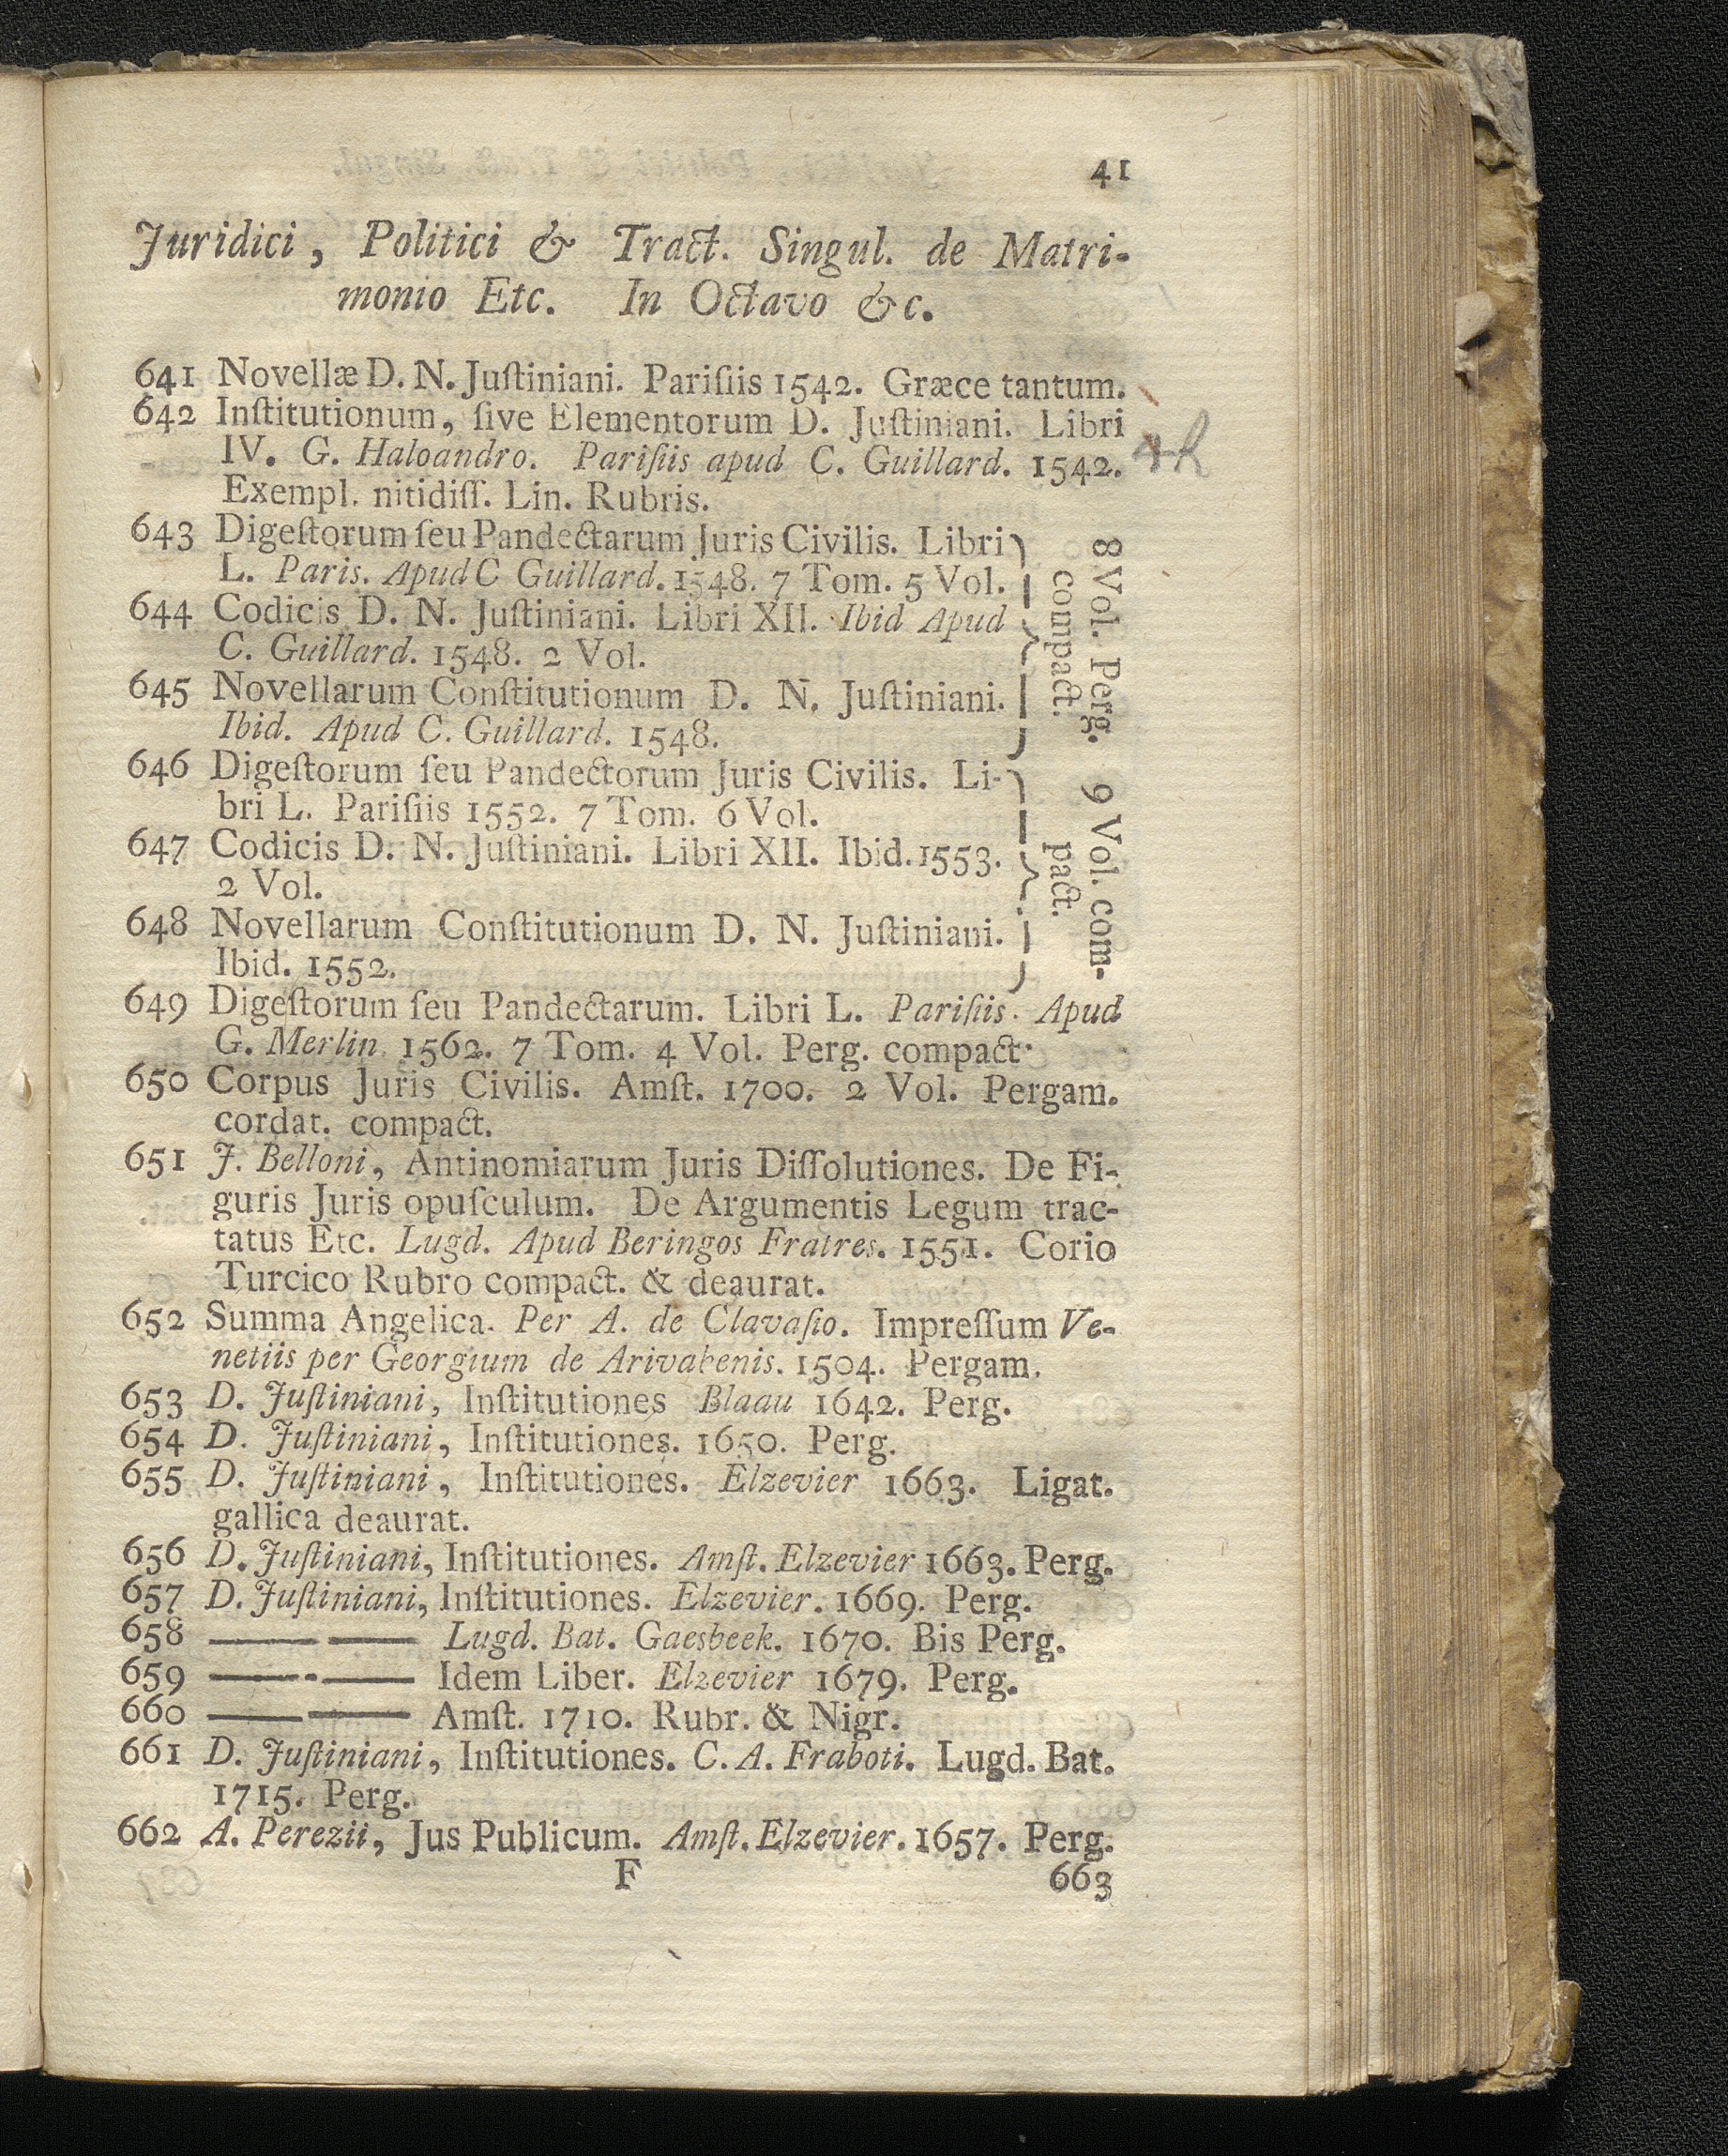 41
Juridici, Politici & Tract. Singul. de Matri-
monio Etc. In Octavo &c.
641 Novellæ D. N. Juſtiniani. Pariſiis 1542. Græce tantum.
642 Inſtitutionum, ſive Elementorum D. Juſtiniani. Libri
IV. G. Haloandro. Pariſiis apud C. Guillard. 1542.
Exempl. nitidiſſ. Lin. Rubris.
643 Digeſtorum ſeu Pandectarum Juris Civilis. Libri
L. Paris. Apud C Guillard. 1548. 7 Tom. 5 Vol.
644 Codicis D. N. Juſtiniani. Libri XII. Ibid Apud
C. Guillard. 1548. 2 Vol.
645 Novellarum Conſtitutionum D. N. Juſtiniani.
Ibid. Apud C. Guillard. 1548.
8 Vol. Perg.
compact.
646 Digeſtorum ſeu Pandectorum Juris Civilis. Li-
bri L. Pariſiis 1552. 7 Tom. 6 Vol.
647 Codicis D. N. Juſtiniani. Libri XII. Ibid. 1553.
2 Vol.
648 Novellarum Conſtitutionum D. N. Juſtiniani.
Ibid. 1552.
9 Vol. com-
pact.
649 Digeſtorum ſeu Pandectarum. Libri L. Pariſiis. Apud
G. Merlin. 1562. 7 Tom. 4 Vol. Perg. compact.
650 Corpus Juris Civilis. Amſt. 1700. 2 Vol. Pergam.
cordat. compact.
651 J. Belloni, Antinomiarum Juris Diſſolutiones. De Fi-
guris Juris opuſculum. De Argumentis Legum trac-
tatus Etc. Lugd. Apud Beringos Fratres. 1551. Corio
Turcico Rubro compact. & deaurat.
652 Summa Angelica. Per A. de Clavaſio. Impreſſum Ve-
netiis per Georgium de Arivabenis. 1504. Pergam.
653 D. Juſtiniani, Inſtitutiones Blaau 1642. Perg.
654 D. Juſtiniani, Inſtitutiones. 1650. Perg.
655 D. Juſtiniani, Inſtitutiones. Elzevier 1663. Ligat.
gallica deaurat.
656 D. Juſtiniani, Inſtitutiones. Amſt. Elzevier 1663. Perg.
657 D. Juſtiniani, Inſtitutiones. Elzevier. 1669. Perg.
658 —— —— Lugd. Bat. Gaesbeek. 1670. Bis Perg.
659 —— —— Idem Liber. Elzevier 1679. Perg.
660 —— —— Amſt. 1710. Rubr. & Nigr.
661 D. Juſtiniani, Inſtitutiones. C. A. Fraboti. Lugd. Bat.
1715. Perg.
662 A. Perezii, Jus Publicum. Amſt. Elzevier. 1657. Perg.
F 663